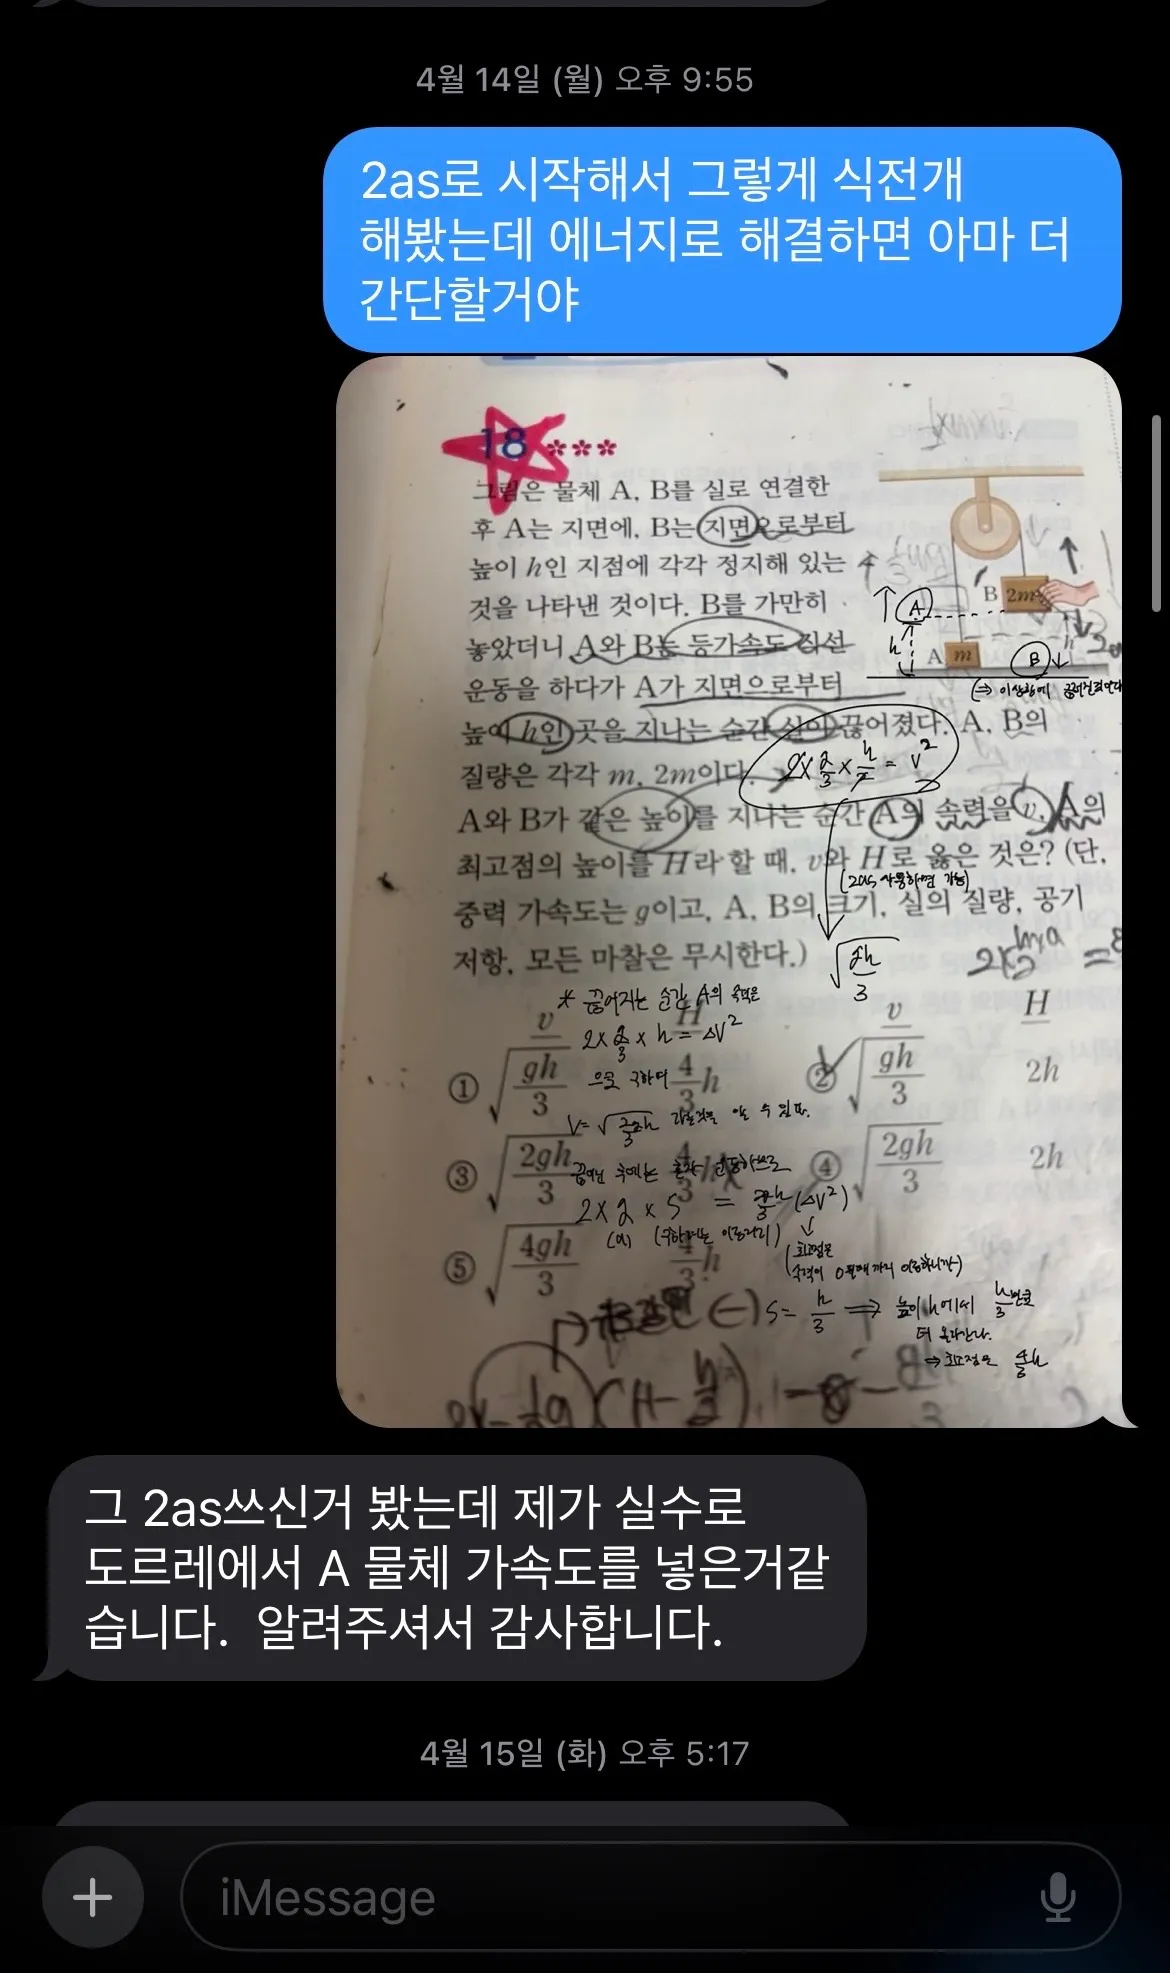 4월 14일 (월) 오후 9:55
2as로 시작해서 그렇게 식전개
해봤는데 에너지로 해결하면 아마 더
간단할거야
18 ***
그림은 물체 A, B를 실로 연결한
후 A는 지면에, B는 지면으로부터
높이 h인 지점에 각각 정지해 있는
것을 나타낸 것이다. B를 가만히
놓았더니 A와 B는 등가속도 직선
운동을 하다가 A가 지면으로부터
높이 h인 곳을 지나는 순간 실이 끊어졌다. A, B의
질량은 각각 m, 2m이다.
A와 B가 같은 높이를 지나는 순간 A의 속력을 v, A의
최고점의 높이를 H라 할 때, v와 H로 옳은 것은? (단,
중력 가속도는 g이고, A, B의 크기, 실의 질량, 공기
저항, 모든 마찰은 무시한다.)
B 2m
A
h
A m
B
h
2× g/3 × h/2 = v²
(2as 사용하면 가능)
√gh/3
* 끊어지는 순간 A의 속력은
2× g/3 × h = △V²
으로 구하며
V= √2/3gh 라는것을 알 수 있따.
v H v H
① √gh/3 4/3h ② √gh/3 2h
③ √2gh/3 4/3h ④ √2gh/3 2h
⑤ √4gh/3 4/3h
끊어진 후에는 혼자 운동하므로
2× g × s = 2gh/3 (△V²)
(a) (구하려는 이동거리)
(최고점은
속력이 0될때 까지 이동하니까)
s = h/3 ⟹ 높이 h에서 h/3만큼
더 올라간다.
⇒ 최고점은 4/3h
그 2as쓰신거 봤는데 제가 실수로
도르레에서 A 물체 가속도를 넣은거같
습니다.  알려주셔서 감사합니다.
4월 15일 (화) 오후 5:17
iMessage